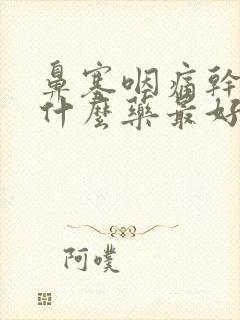 鼻塞咽痛幹
什麼藥最好
阿噗